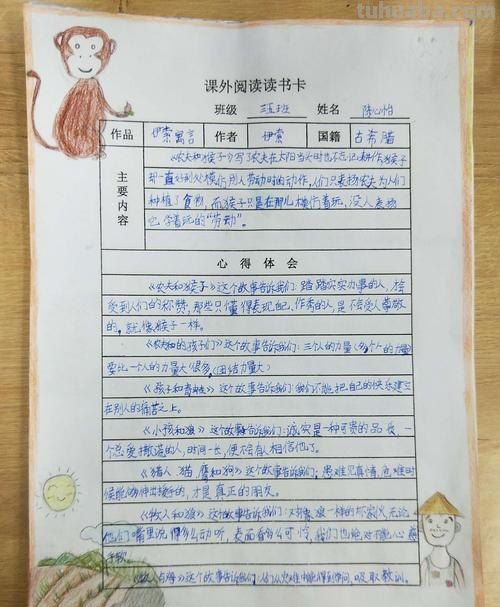 tuhuaba.com
课外阅读读书卡
班级 三五班 姓名 陈心怡
作品 伊索寓言 作者 伊索 国籍 古希腊
主要内容
《农夫和猴子》写了农夫在太阳当头时也不忘记耕作,猴子
却一直好别人模仿别人劳动时的动作,人们只表扬农夫为人们
种植了食物,而猴子只是在那儿模仿着玩,没人表扬
它学着玩的“劳动”。
心得体会
《农夫和猴子》这个故事告诉我们:踏踏实实办事的人,才会
受到人们的称赞,那些只懂得表现自己、作秀的人,是不会受人尊敬
的,就像猴子一样。
《农夫和孩子们》这个故事告诉我们:三个人的力量(多个人的力量)
要比一个人的力量大很多。(团结力量大)
《孩子和青蛙》这个故事告诉我们:我们不能把自己的快乐建立
在别人的痛苦之上。
《小孩和狼》这个故事告诉我们:诚实是一种可贵的品质,一
个总爱撒谎的人,时间一长,便不会有人相信他了。
《猎人、猫、鹰和狗》这个故事告诉我们:患难见真情,危难时
候能够伸出援手的,才是真正的朋友。
《牧人和狼》这个故事告诉我们:对像狼一样的坏家伙,无论
他们嘴里说得多么动听,表面看多么可怜,我们也绝对不能心慈
手软。
这个故事告诉我们:从灾难中能得到吸取教训。